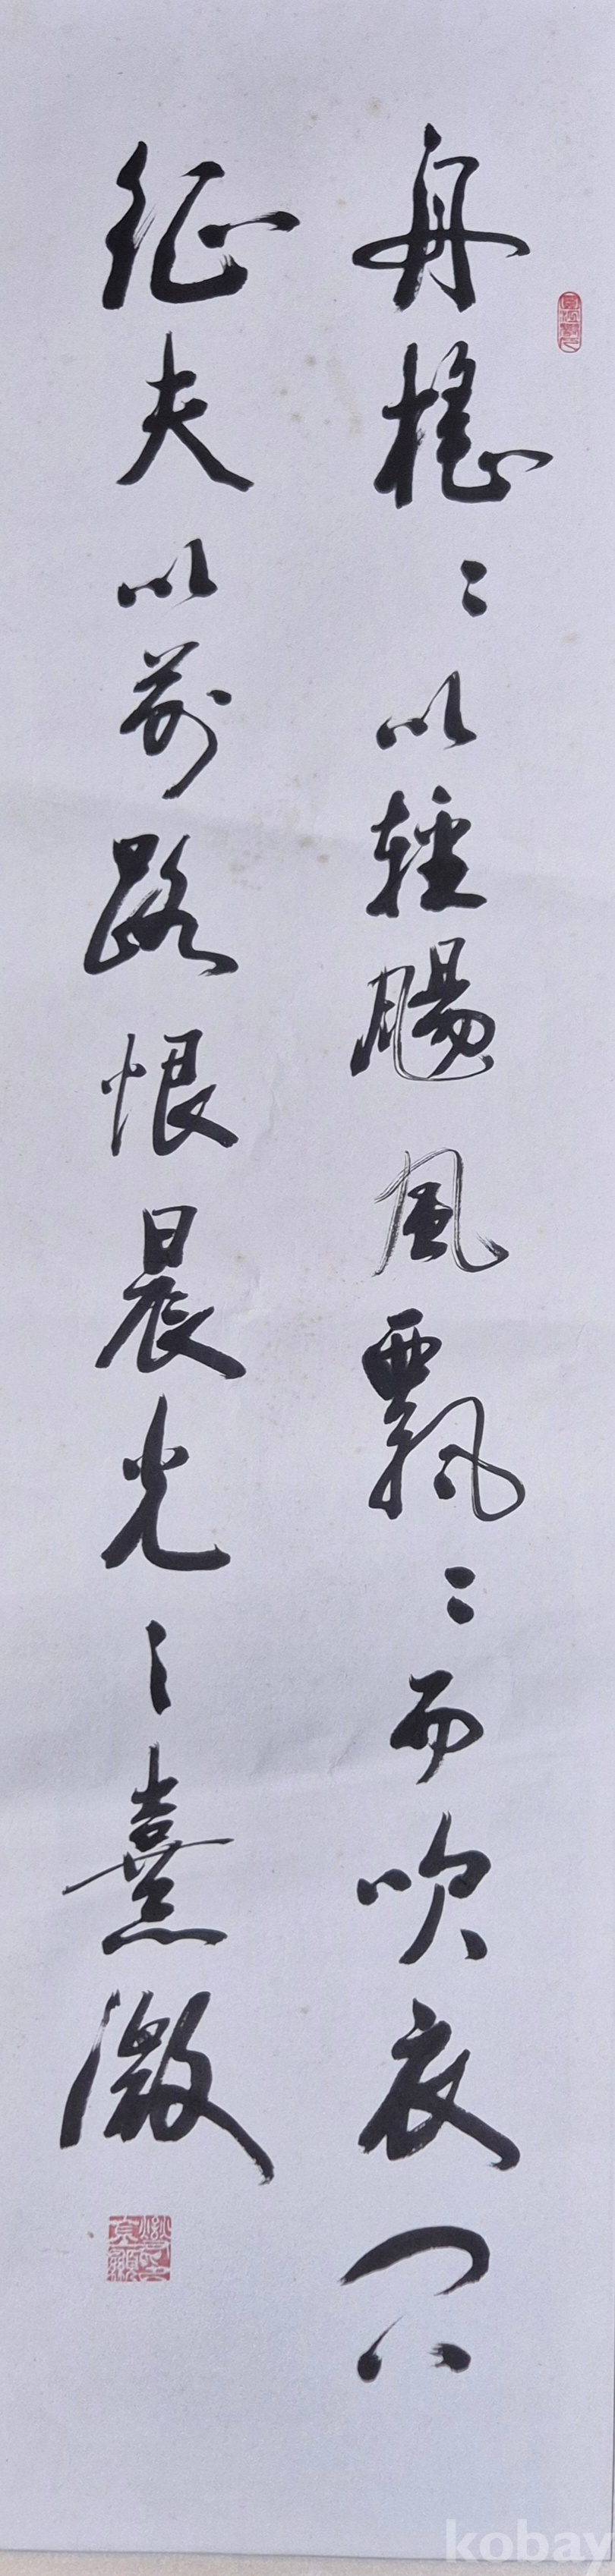 舟摇〻以輕颺風飄〻而吹衣问
征夫以前路恨晨光之熹微
kobay